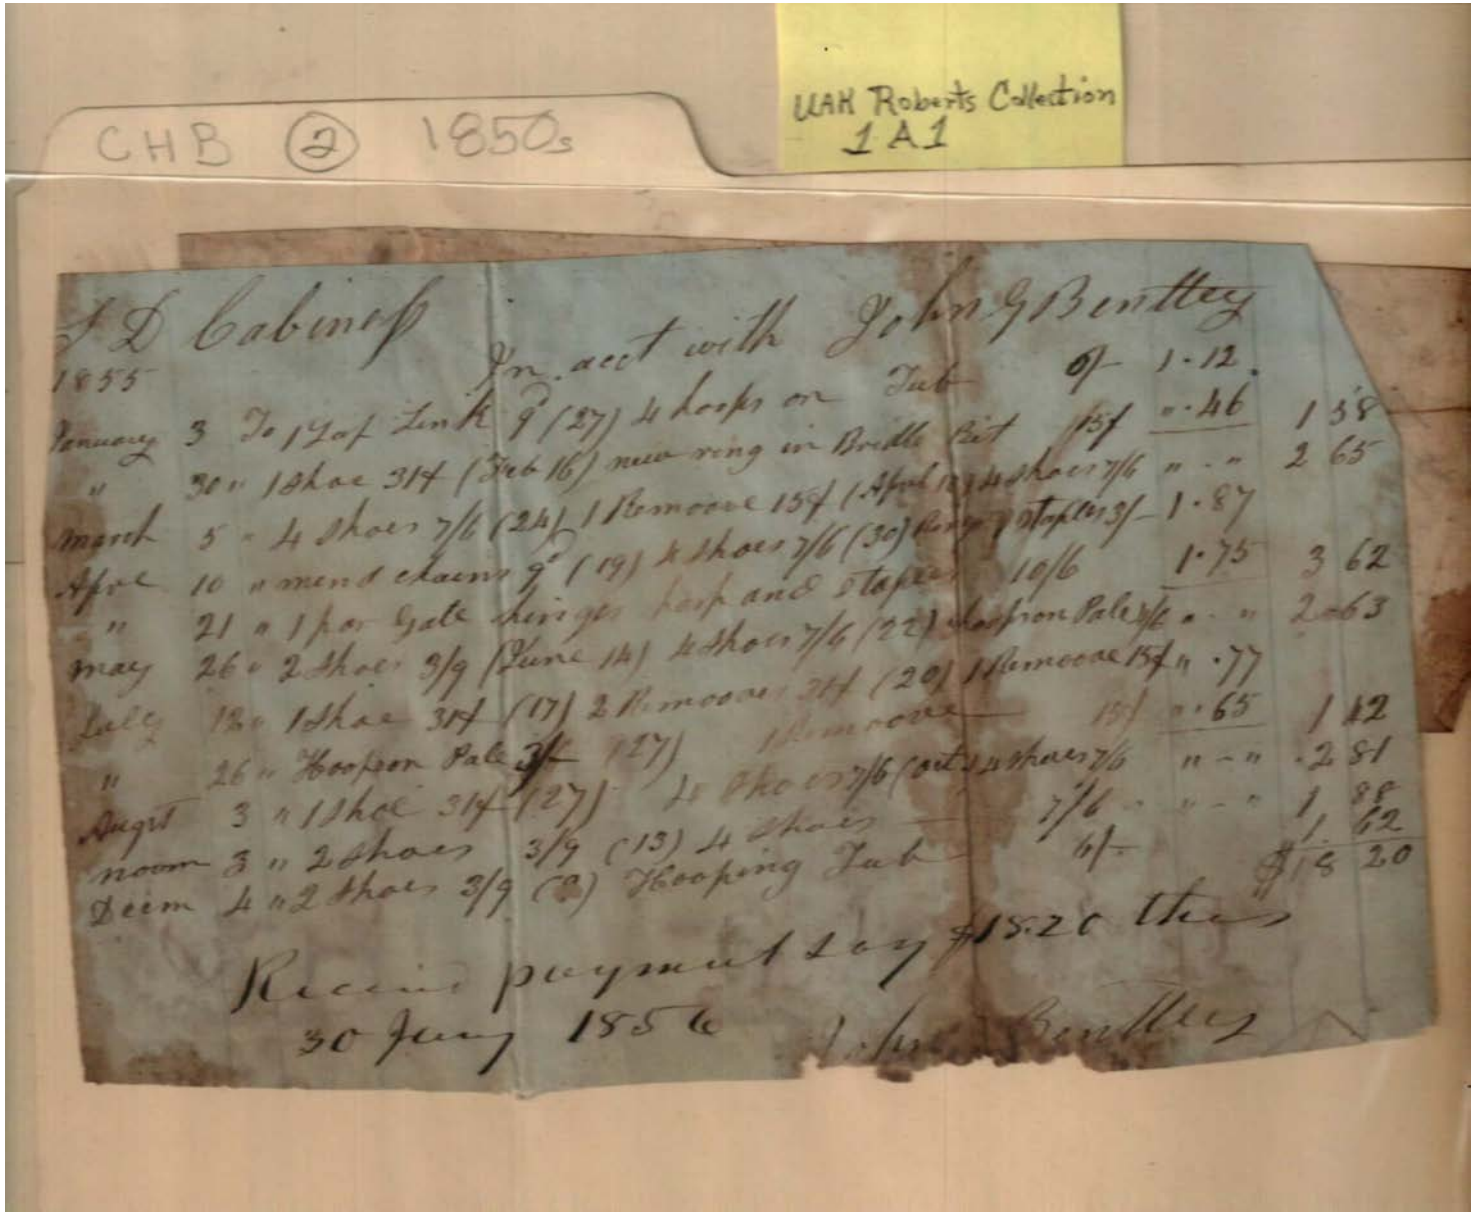 UAH Roberts Collection
1 A 1
CHB ② 1850s
S D Cabiness
In acct with John G Bentley
1855
January 3 To 1 Lap Link 9d (27) 4 hoops on Tub 6/- 1.12.
" 30 " 1 Shoe 31¢ (Feb 16) new ring in Bridle Bit 15¢ ".46 1 58
March 5 " 4 Shoes 7/6 (24) 1 Remoove 15¢ (April 4 Shoes 7/6 " - " 2 65
Aprl 10 " mend chains 9d (19) 4 Shoes 7/6 (30) staples 3/- 1.87
" 21 " 1 par Gate hinges hasp and staples 10/6 1.75 3 62
May 26 " 2 Shoes 3/9 (June 14) 4 Shoes 7/6 (22) hoop on Pale " - " 2 63
July 12 " 1 Shoe 31¢ (17) 2 Remooves 31¢ (20) 1 Remoove 15¢ ".77
" 26 " Hoops on Pale 3/- (27) 1 Remoove 15¢ ".65 1 42
Augst 3 " 1 Shoe 31¢ (27) 4 Shoes 7/6 (oct 4 Shoes 7/6 " - " 2 81
Novm 3 " 2 Shoes 3/9 (13) 4 Shoes 7/6 " - " 1 88
Decm 4 " 2 Shoes 3/9 (8) Hooping Tub 6/- 1 62
$18 20
Receivd payment say $18.20 this
30 Jany 1856 John Bentley